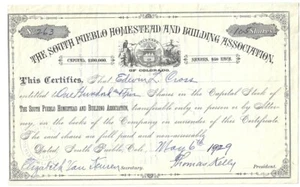 No. 263
Shares
THE SOUTH PUEBLO HOMESTEAD AND BUILDING ASSOCIATION,
CAPITAL, $200,000.
SHARES, $50 EACH.
OF COLORADO.
This Certifies, That Edwin L. Cross
entitled to One Hundred & Five Shares on the Capital Stock of
THE SOUTH PUEBLO HOMESTEAD AND BUILDING ASSOCIATION, transferable only in person or by Attor-
ney, on the books of the Company on surrender of this Certificate.
The said shares are full paid and non-assessable.
Dated, South Pueblo, Colo. May 6th 1929
Elizabeth Van Secretary. Thomas Kelly President.